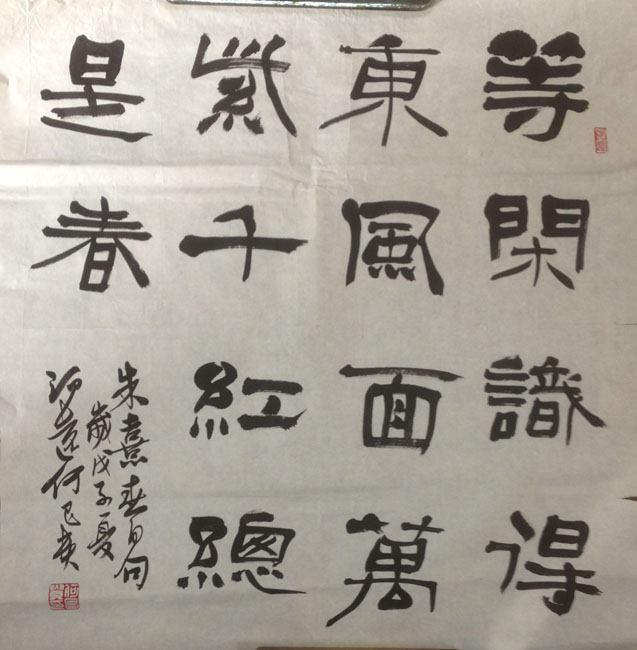 等閑識得
東風面萬
紫千紅總
是春
朱熹春日句
歲戊子夏